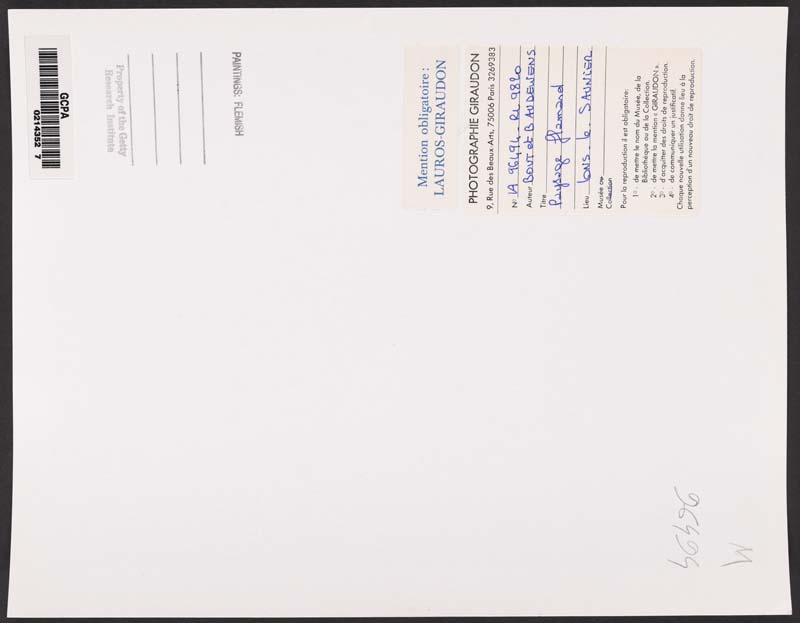 GCPA
0214352 7
Property of the Getty
Research Institute
PAINTINGS: FLEMISH
Mention obligatoire :
LAUROS-GIRAUDON
PHOTOGRAPHIE GIRAUDON
9, Rue des Beaux Arts, 75006 Paris 3269383
N° LA 96494 - RL 9820
Auteur BOUT et BAUDEWIENS
Titre
Paysage flamand
Lieu LONS - le - SAUNIER
Musée ou
Collection
Pour la reproduction il est obligatoire:
1° - de mettre le nom du Musée, de la
Bibliothèque ou de la Collection.
2° - de mettre la mention « GIRAUDON ».
3° - d'acquitter des droits de reproduction.
4° - de communiquer un justificatif.
Chaque nouvelle utilisation donne lieu à la
perception d'un nouveau droit de reproduction.
96494